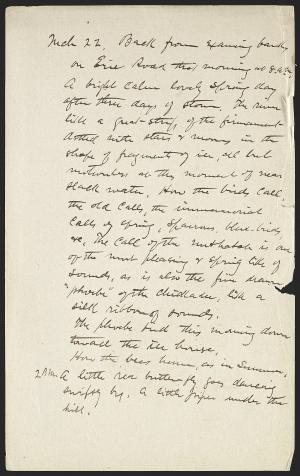 Mch 22, Back from examing banks
on Erie Road this morning at 8.
A bright calm lovely spring day
after three days of storm. The river
like a great strip of the firmament
dotted with stars & moons in the
shape of fragments of ice, all but
motionless at this moment of near
slack water. How the birds call,
the old calls, the immemorial
calls of spring, sparrows, blue-birds,
&c. The call of the nuthatch is one
of the most pleasing & spring like of
sounds, as is also the fine drawn
"phoebe" of the chickadee, like a
silk ribbon of sounds.
The phoebe bird this morning down
toward the ice house.
How the bees hum, as in Summer,
2 P.M. A little red butterfly goes dancing
swiftly by. A little piper under the
hill.